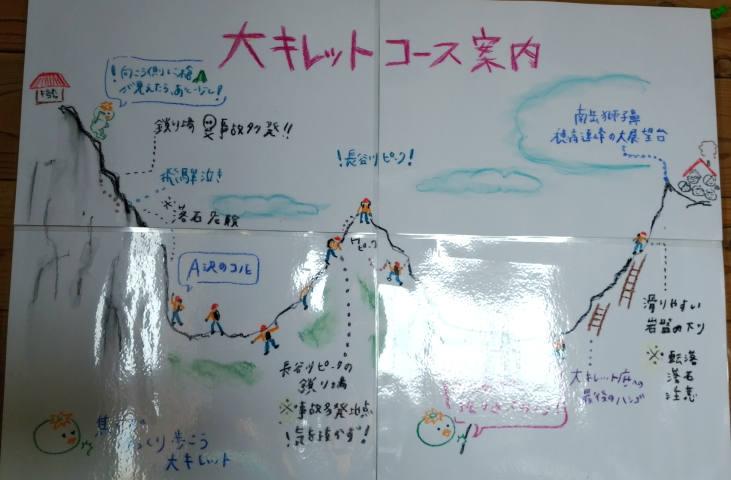 大キレットコース案内
！向こう側に槍
が見えたら、あと一息！
鎖り場 事故多発！！
飛騨泣き
※落石危険
A沢のコル
！長谷川ピーク！
ピーク
南岳獅子鼻
穂高連峰の大展望台
長谷川ピークの
鎖り場
※事故多発地点
！気を抜かず！
滑りやすい
岩盤の下り
※転落
落石
注意
大キレット底への
最後のハシゴ
くり歩こう
大キレット